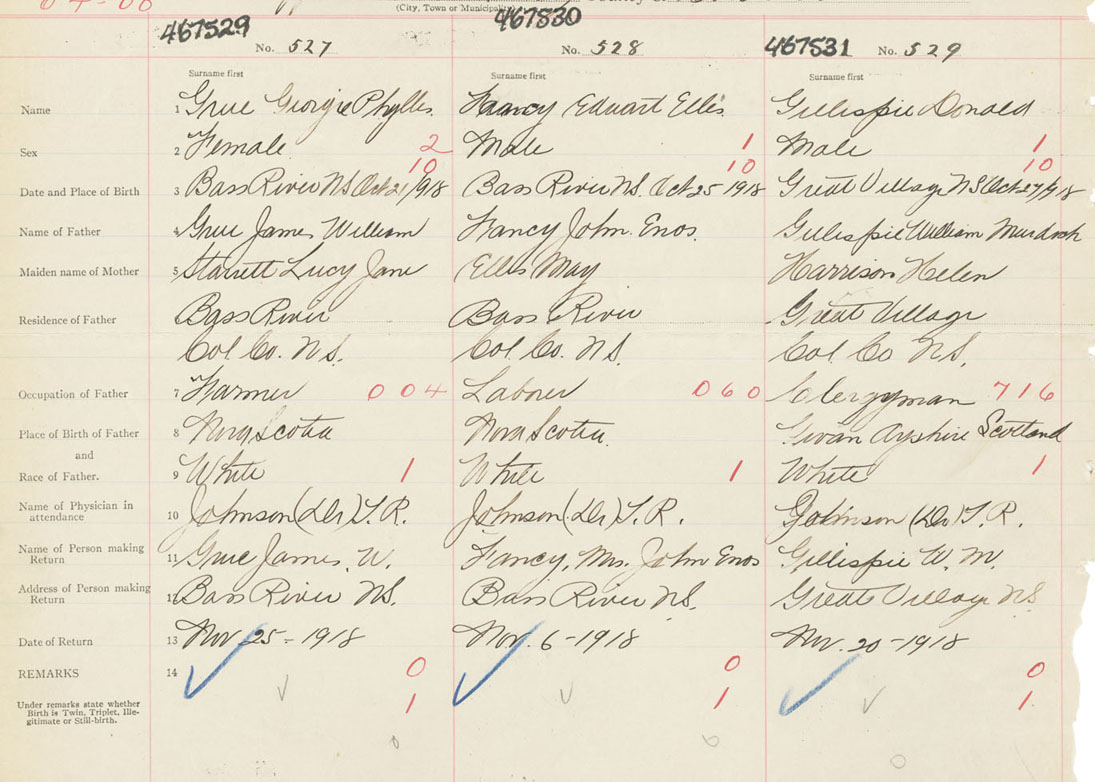 04-06
(City, Town or Municipality)
467529 467530 467531
No. 527 No. 528 No. 529
Surname first Surname first Surname first
Name 1 Grue Georgie Phyllis Fancy Eduart Ellis Gillespie Donald
Sex 2 Female 2 Male 1 Male 1
10 10 10
Date and Place of Birth 3 Bass River NS Oct 21/918 Bass River NS. Oct 25 1918 Great Village NS Oct 27/918
Name of Father 4 Grue James William Fancy John. Enos. Gillespie William Murdoch
Maiden name of Mother 5 Starrett Lucy Jane Ellis May Harrison Helen
Residence of Father Bass River Bass River Great Village
Col. Co. NS. Col. Co. NS. Col. Co NS.
Occupation of Father 7 Farmer 004 Laborer 060 Clergyman 716
Place of Birth of Father 8 Nova Scotia Nova Scotia Girvan Ayshire Scotland
and
Race of Father. 9 White 1 White 1 White 1
Name of Physician in
attendance 10 Johnson (Dr) T. R. Johnson (Dr) T. R. Johnson (Dr) T. R.
Name of Person making
Return 11 Grue James. W. Fancy, Mrs. John Enos Gillespie W. M.
Address of Person making
Return 12 Bass River NS. Bass River NS. Great Village NS
Date of Return 13 Nov 25-1918 Nov. 6-1918 Nov. 20-1918
REMARKS 14 0 0 0
Under remarks state whether
Birth is Twin, Triplet, Ille-
gitimate or Still-birth. 1 1 1
0 0 0